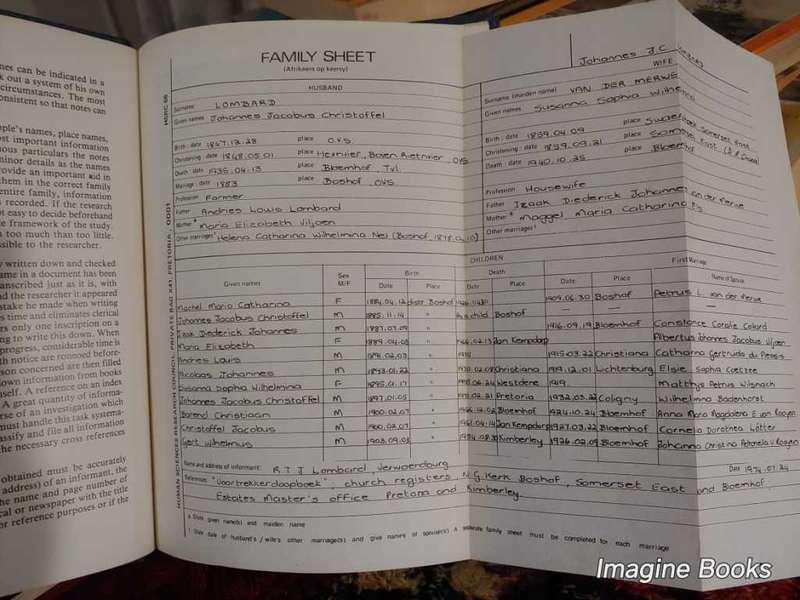 nes can be indicated in a
k out a system of his own
circumstances. The most
onsistent so that notes can
ople's names, place names,
ost important information
uous particulars the notes
minor details as the names
rovide an important aid in
them in the correct family
entire family, information
s recorded. If the research
ot easy to decide beforehand
e framework of the study.
too much than too little.
ssible to the researcher.
y written down and checked
ame in a document has been
transcribed just as it is, with
nd the researcher it appeared
stake he made when writing
es time and eliminates clerical
ers only one inscription on a
ing to write this down. When
progress, considerable time is
th notice are removed before-
erson concerned are then filled
own information from books
self. A reference on an index
A great quantity of informa-
urse of an investigation which
must handle this task systema-
lassify and file all information
the necessary cross references
obtained must be accurately
address) of an informant, the
name and page number of
cal or newspaper with the title
or reference purposes or if the
HUMAN SCIENCES RESEARCH COUNCIL, PRIVATE BAG X41, PRETORIA, 0001
HSRC 66
FAMILY SHEET
(Afrikaans op keersy)
Johannes J.C.
HUSBAND
Surname LOMBARD
Given names Johannes Jacobus Christoffel
Birth: date 1847.12.28 place O.V.S.
Christening: date 1848.05.01 place
Death: date 1935.04.13 place Bloemhof, Tvl.
Marriage: date 1883 place Boshof O.V.S.
Profession Farmer
Father Andries Louis Lombard
Mother Maria Elizabeth Viljoen
Other marriages Helena Catharina Wilhelmina Nel (Boshof, 1878.
WIFE
Surname (maiden name) VAN DER MERWE
Given names Susanna Sophia
Birth: date 1859.04.09 place Somerset East
Christening: date 1859.09.21 place Somerset East
Death: date 1940.10.25 place
Profession Housewife
Father Izaak Diederick Johannes
Mother Maria Catharina
Other marriages
CHILDREN
Given names Sex M/F Birth Death First Marriage
Date Place Date Place Date Place Name of Spouse
Rachel Maria Catharina F 1884.04.12 distr. Boshof 1909.06.30 Boshof Petrus L. van der Merwe
Johannes Jacobus Christoffel M 1885.11.14 " as child Boshof — — —
Izaak Diederick Johannes M 1887.07.09 " 1916.09.19 Bloemhof Constance Coralie
Maria Elizabeth F " Jan Kempdorp Albertus Johannes Jacobus Viljoen
Andries Louis M " 1915.03.22 Christiana Catharina Gertruida du Plessis
Nicolaas Johannes M 1893.01.22 " Christiana 1919.12.01 Lichtenburg Elsie Sophia Coetzee
Susanna Sophia Wilhelmina F 1895.01.17 " Westdene 1919. Matthys Petrus
Johannes Jacobus Christoffel M 1897.01.05 " Pretoria 1932.03.22 Coligny Wilhelmina Badenhorst
Barend Christiaan M 1900.02.07 " Bloemhof 1924.10.24 Bloemhof Anna Maria Magdalena E. van Rooyen
Christoffel Jacobus M 1900.02.07 " Jan Kempdorp 1927.03.22 Bloemhof Cornelia Dorothea Lötter
Gert Wilhelmus M 1903.09.05 " Kimberley 1926.02.09 Bloemhof Johanna Christina Petronela v Rooyen
Name and address of informant: R T J Lombard, Verwoerdburg Date 1974.01.24
References "Voortrekkerdagboek", church registers, N.G. Kerk Boshof, Somerset East and Bloemhof.
Estates Master's office Pretoria and Kimberley
a Give given name(s) and maiden name
Give date of husband's / wife's other marriage(s) and give names of spouse(s) A separate family sheet must be completed for each marriage
Imagine Books